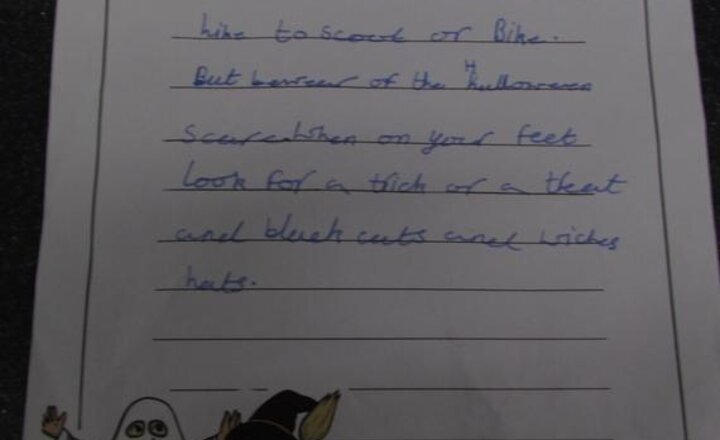 hike to scout or Bike.
But bewear of the Halloween
scare when on your feet
look for a trick or a theat
and black cats and wiches
hats.